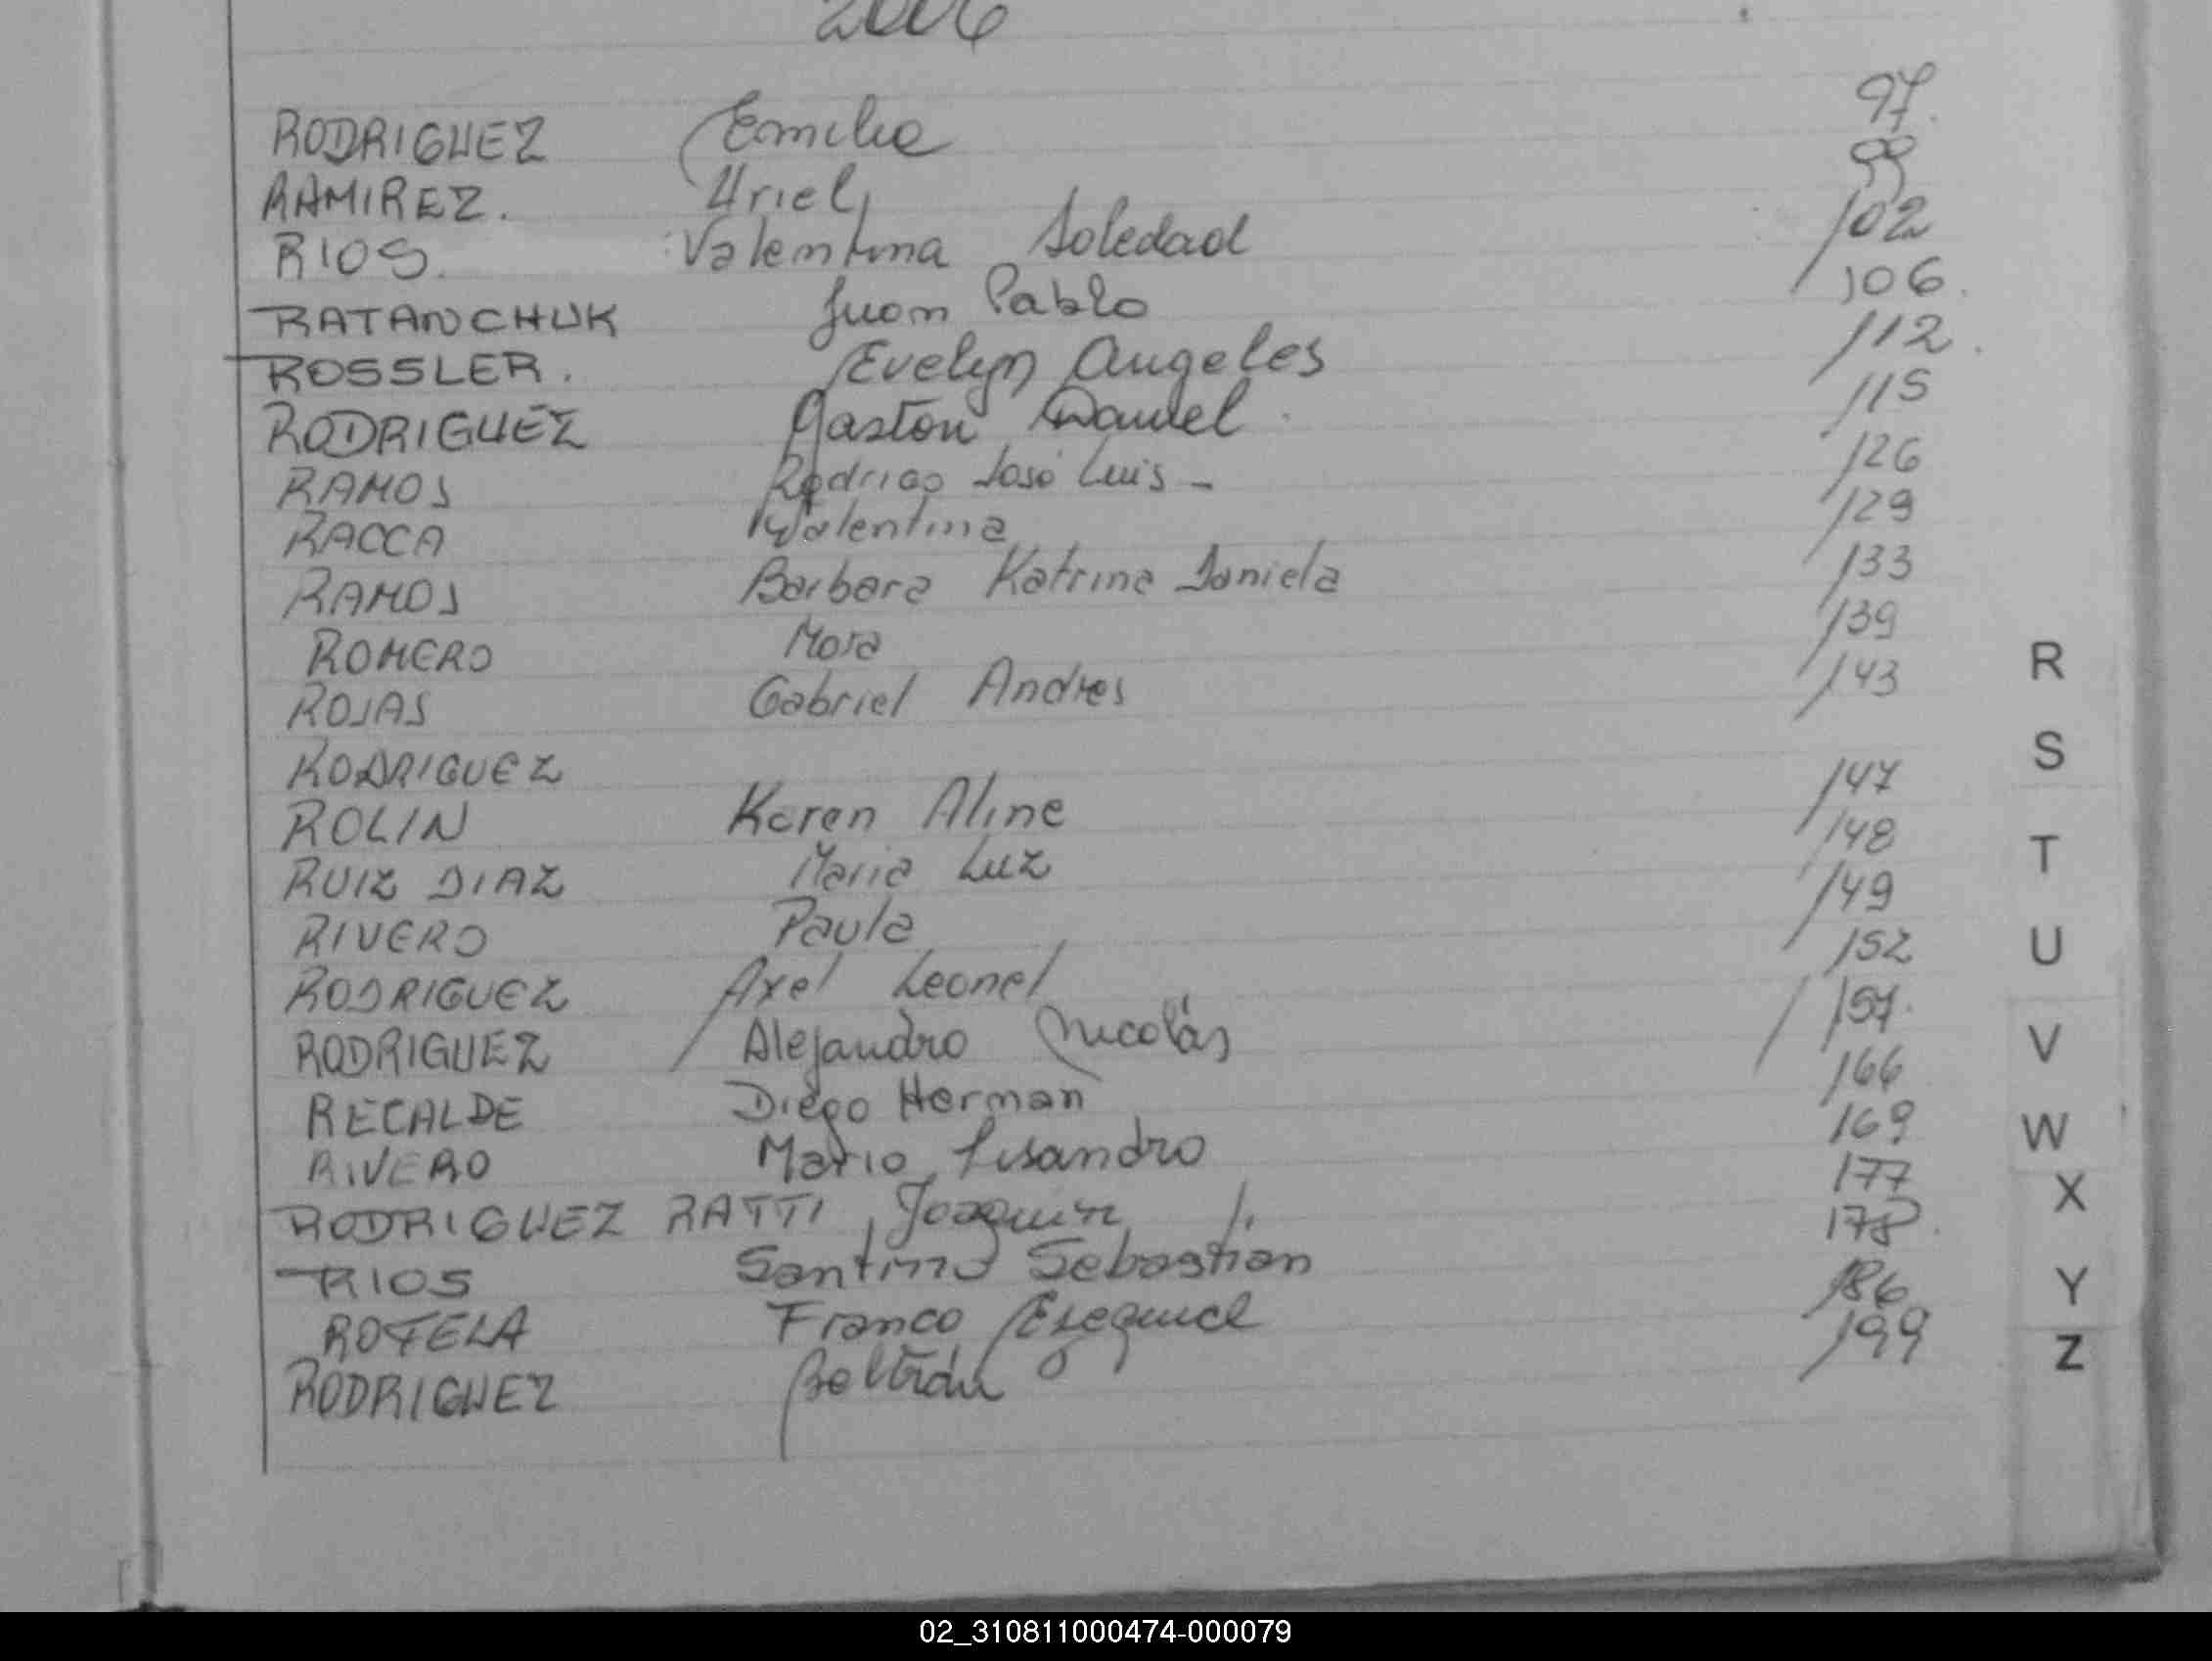 2006
RODRIGUEZ Emilia 97
RAMIREZ. Uriel 99
RIOS. Valentina Soledad 102
RATANCHUK Juan Pablo 106
ROSSLER. Evelyn Angeles 112
RODRIGUEZ Gastón Daniel 115
RAMOS Rodrigo José Luis - 126
RACCA Valentina 129
RAMOS Barbara Katrina Daniela 133
ROMERO Mora 139
ROJAS Gabriel Andres 143
RODRIGUEZ
ROLIN Karen Aline 147
RUIZ DIAZ Maria Luz 148
RIVERO Paula 149
RODRIGUEZ Axel Leonel 152
RODRIGUEZ Alejandro Nicolás 157
RECALDE Diego Herman 166
RIVERO Mario Lisandro 169
RODRIGUEZ RATTI, Joaquin 177
RIOS Santino Sebastian 178
ROTELA Franco Ezequiel 186
RODRIGUEZ Beltrán 199
R
S
T
U
V
W
X
Y
Z
02_310811000474-000079